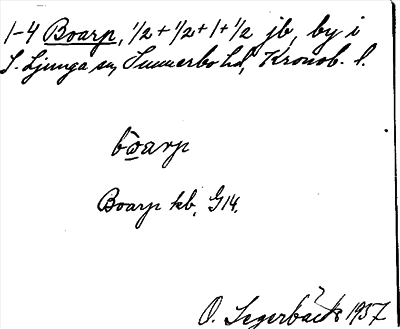 1-4 Boarp, 1/2 + 1/2 + 1 + 1/2 jb, by i
S. Ljunga sn, Sunnerbo hd, Kronob. l.
boarp
Boarp kb, G14.
O. Segerbäck 1937